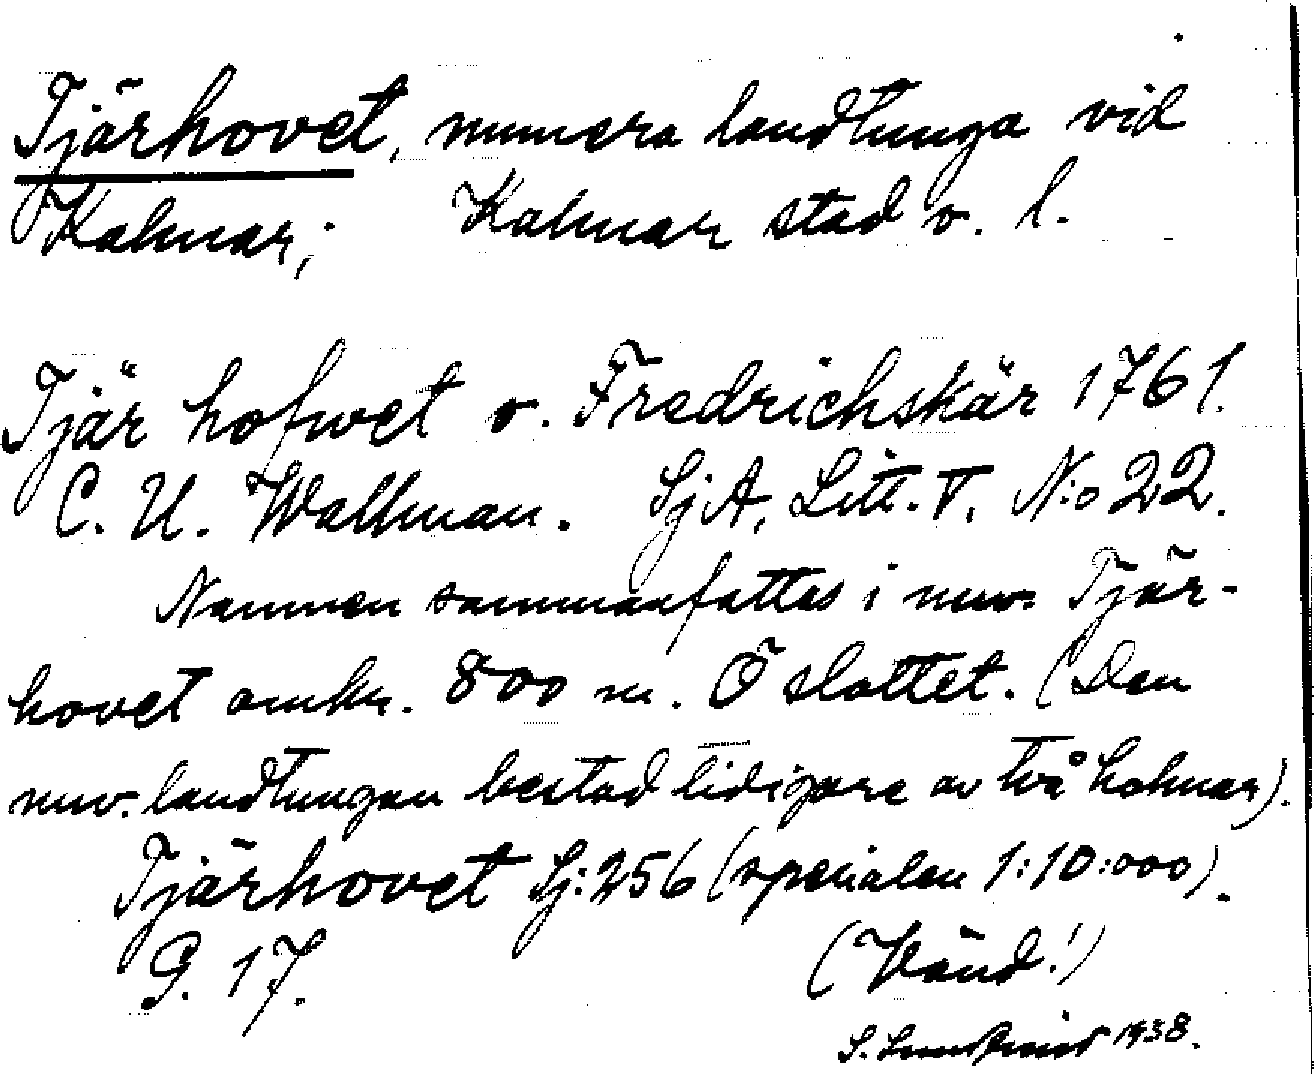 Tjärhovet, numera landtunga vid
Kalmar; Kalmar stad o. l.
Tjär hofwet o. Fredrichskär 1761.
C. U. Wallman. Sj A, Litt. T, N:o 22.
Namnen sammanfattas i nuv. Tjär-
hovet omkr. 800 m. Ö slottet. (Den
nuv. landtungan bestod tidigare av två holmar).
Tjärhovet Sj: 256 (specialen 1:10:000).
G. 17. (Vänd!)
S. 1938.